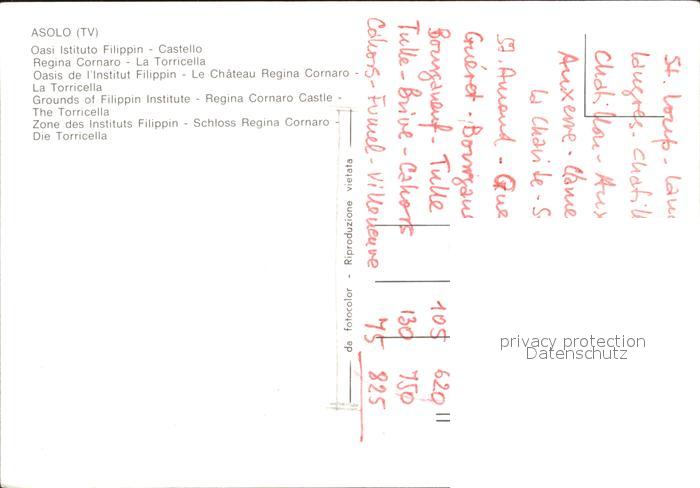 ASOLO (TV)
Oasi Istituto Filippin - Castello
Regina Cornaro - La Torricella
Oasis de l'Institut Filippin - Le Château Regina Cornaro -
La Torricella
Grounds of Filippin Institute - Regina Cornaro Castle -
The Torricella
Zone des Instituts Filippin - Schloss Regina Cornaro -
Die Torricella
da fotocolor - Riproduzione vietata
St. Loup - Lan
Langres - Chatill
Chatillon - Aux
Auxerre - Clame
la Charite - S
St. Amand - Gue
Guéret - Bourgan
Bourganeuf - Tulle 105 620
Tulle - Brive - Cahors 130 750
Cahors - Fumel - Villeneuve 75 825
privacy protection
Datenschutz